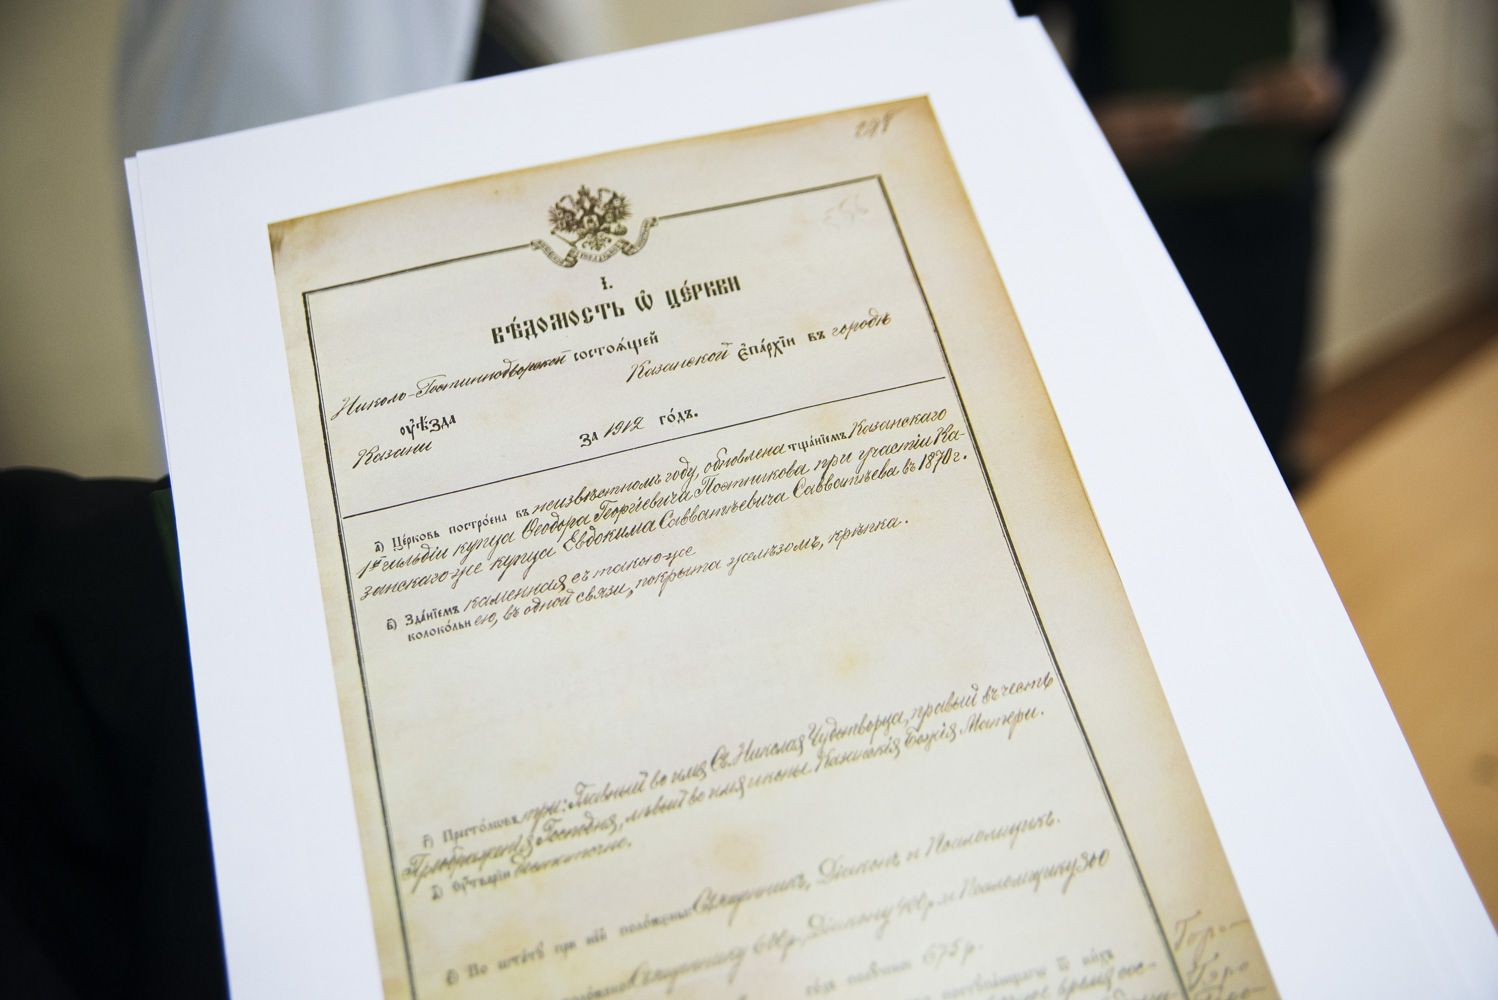 I.
Вѣ́домость ѡ҆ це́ркви
Николо-Гостиннодворской состоѧ́щей
Казанской Е҆па́рхїи въ городѣ
Казани оу҆ѣзда
За 1912 го́дъ.
а) Це́рковь постро́ена въ неизвѣстномъ году, обновлена тща́нїемъ Казанскаго
1ой гильдіи купца Ѳеодора Георгіевича Постникова при участіи Ка-
занскаго-же купца Евдокима Савватьевича Савватѣева въ 1870 г.
б) Зда́нїемъ каменная, съ такою-же
колоко́льнею, въ одной связи, покрыта желѣзомъ, крѣпка.
г) Престо́ловъ три: Главный во имя Св. Николая Чудотворца, правый въ честь
Преображенія Господня, лѣвый во имя иконы Казанскія Божія Матери.
д) Оу҆тварїю достаточно.
е) По шта́тѹ при не́й поло́жены Священникъ, Діаконъ и Псаломщикъ.
Священнику 600 р., Діакону 400 р. и Псаломщику 300
675 р.